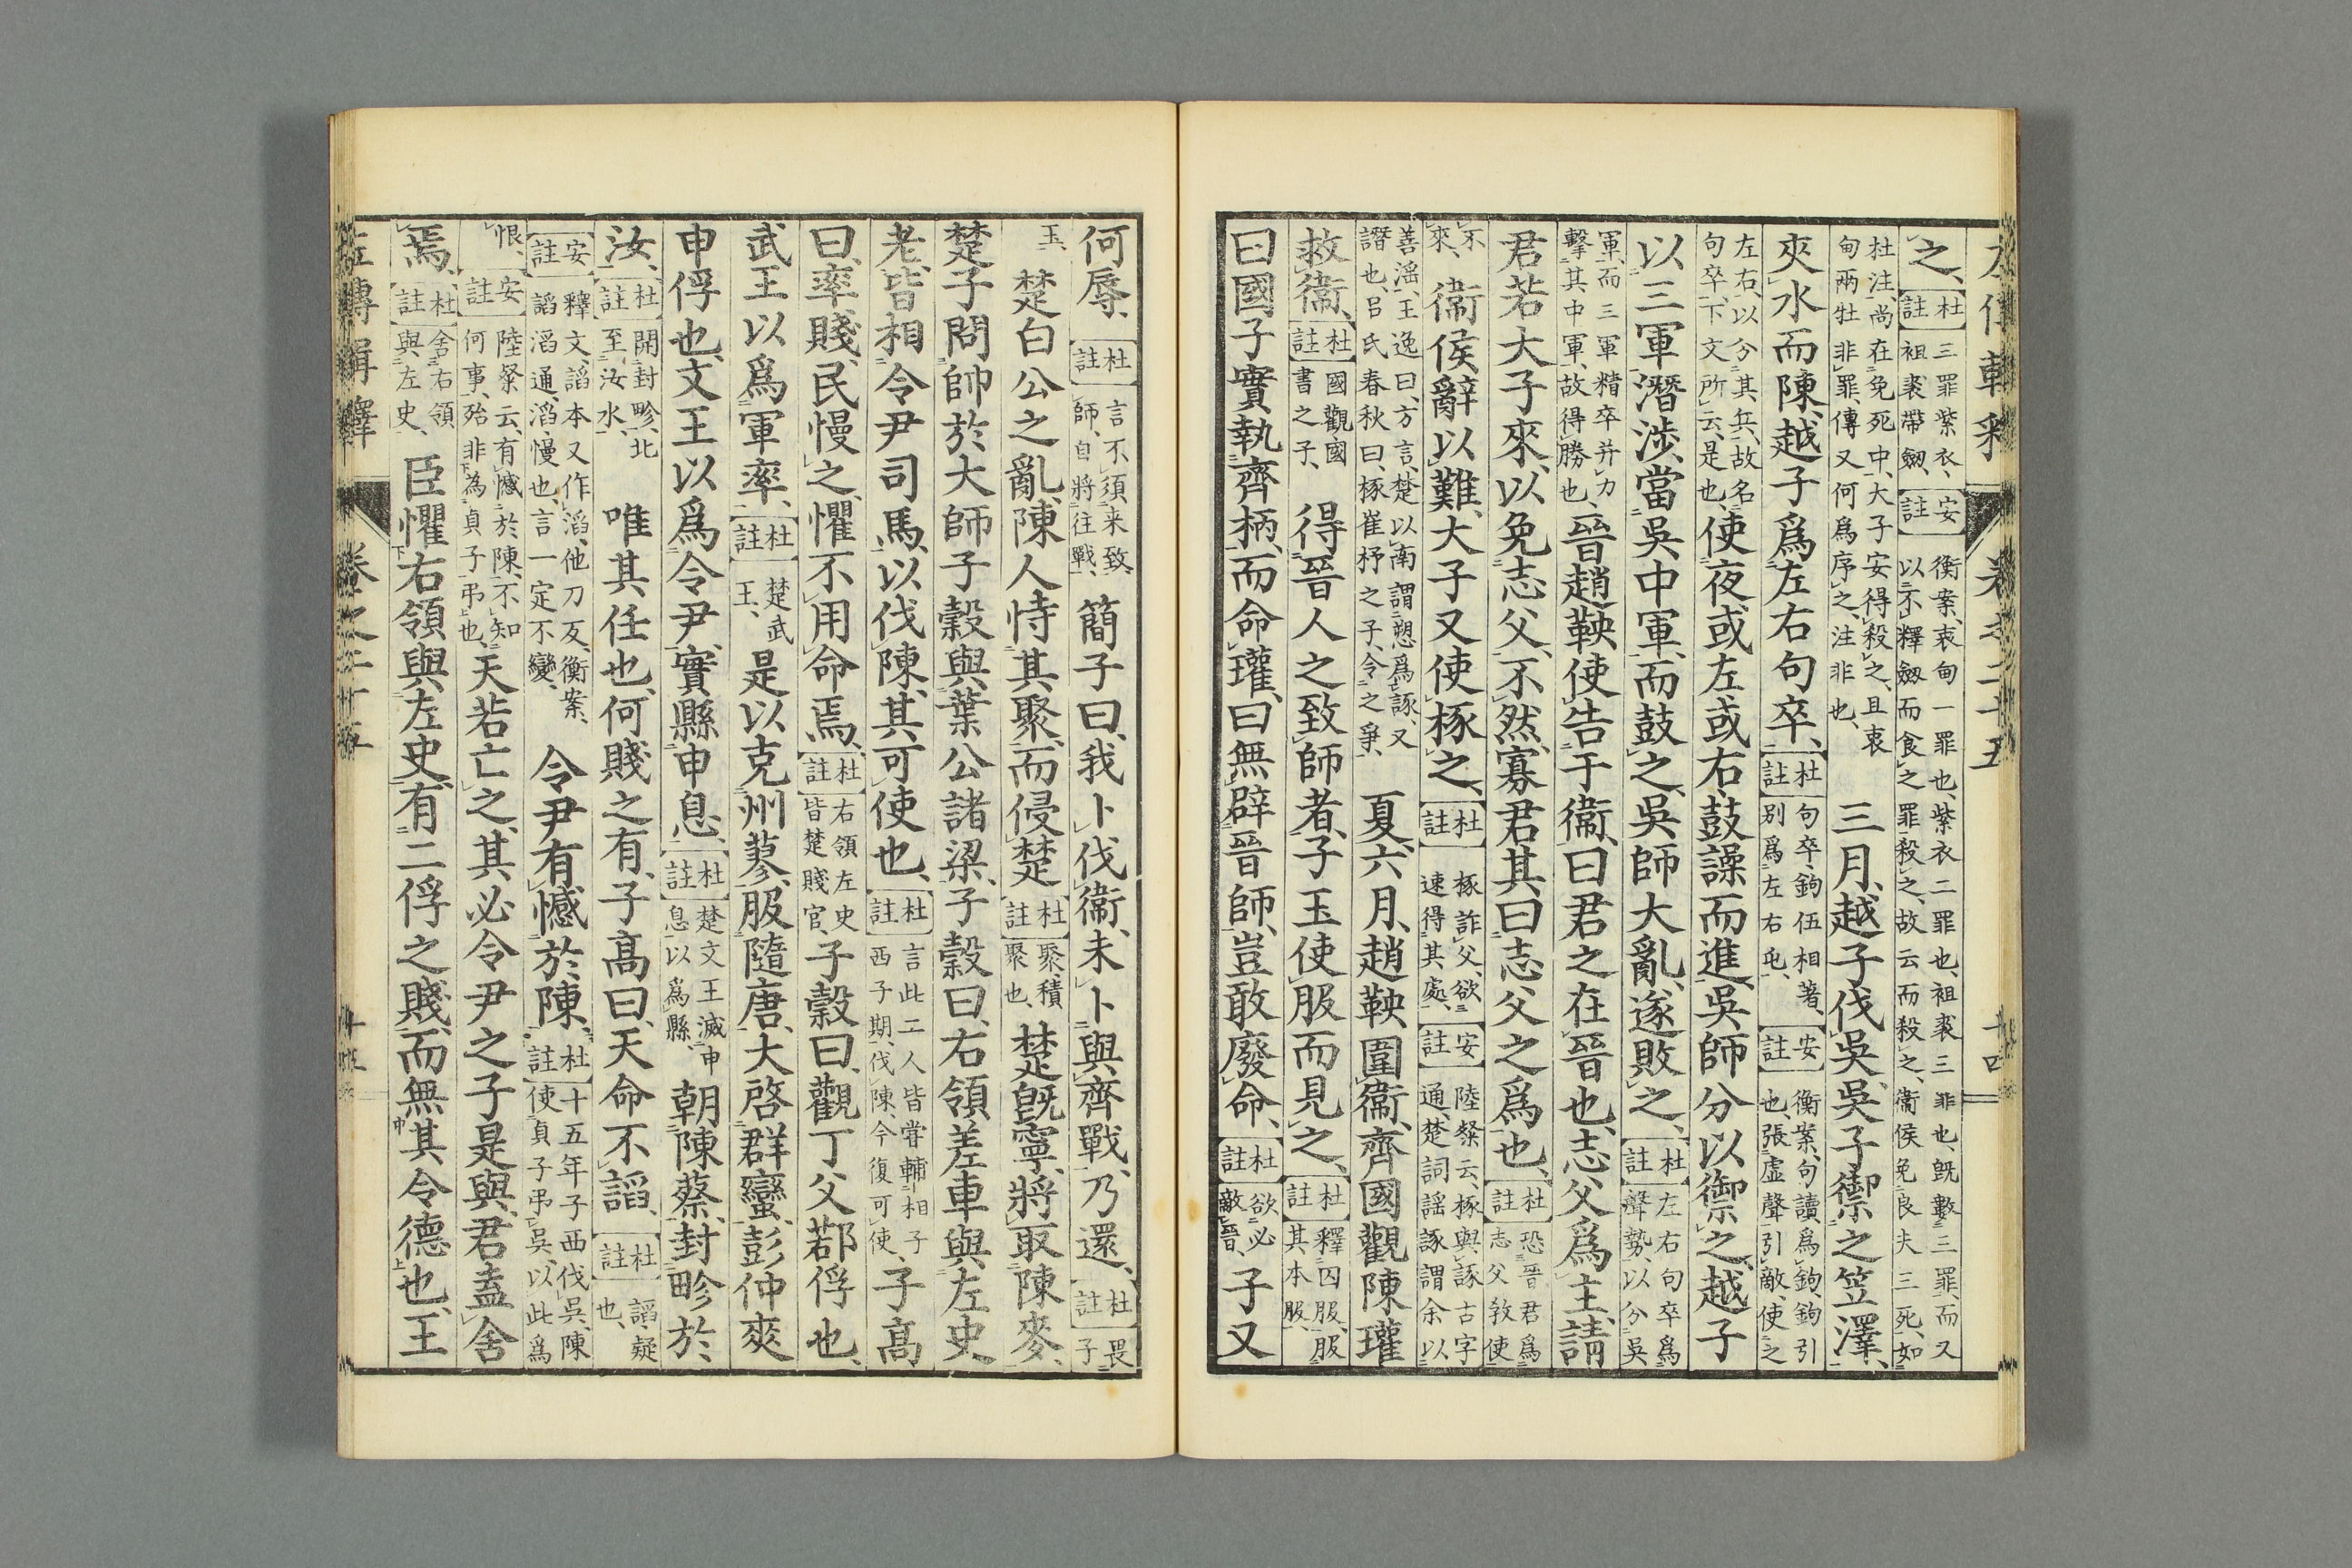 之、杜註三罪紫衣、袒裘帶劒、安註衡案、衷甸一罪也、紫衣二罪也、袒裘三罪也、既數三罪、而又以不釋劒而食之罪殺之、故云而殺之、衞侯免良夫三死、如
杜注、尚在免死中、大子安得殺之、且衷甸兩牡非罪、傳又何爲序之、注非也、三月、越子伐吳、吳子禦之笠澤、
夾水而陳、越子爲左右句卒、杜註句卒、鉤伍相著、別爲左右屯、安註衡案、句讀爲鉤、鉤引也、張虛聲引敵、使之
左右、以分其兵、故名句卒、下文所云是也、使夜或左或右、鼓譟而進、吳師分以禦之、越子
以三軍潛涉、當吳中軍、而鼓之、吳師大亂、遂敗之、杜註左右句卒爲聲勢、以分吳
軍、而三軍精卒并力擊其中軍、故得勝也、晉趙鞅使告于衞、曰君之在晉也、志父爲主、請
君若大子來、以免志父、不然、寡君其曰志父之爲也、杜註恐晉君爲志父敎使
不來、衞侯辭以難、大子又使椓之、杜註椓訴父、欲速得其處、安註陸粲云、椓與諑古字通、楚詞謡諑謂余以
善滛、王逸曰、方言、楚以南謂愬爲諑、又譖也、呂氏春秋曰、椓崔杼之子、令之爭、夏、六月、趙鞅圍衞、齊國觀陳瓘
救衞、杜註國觀、國書之子、得晉人之致師者、子玉使服而見之、杜註釋囚服、服其本服、
曰國子實執齊柄、而命瓘曰無辟晉師、豈敢廢命、杜註欲必敵晉、子又
何辱、杜註言不須来致師、自將往戰、簡子曰、我卜伐衞、未卜與齊戰、乃還、杜註畏子
玉、楚白公之亂、陳人恃其聚、而侵楚、杜註聚、積聚也、楚既寧、將取陳麥、
楚子問帥於大師子穀與葉公諸梁、子穀曰、右領差車與左史
老、皆相令尹司馬、以伐陳、其可使也、杜註言此二人皆嘗輔相子西子期、伐陳、今復可使、子高
曰、率賤、民慢之、懼不用命焉、杜註右領左史皆楚賤官、子穀曰、觀丁父鄀俘也、
武王以爲軍率、杜註楚武王、是以克州蓼、服隨唐、大啓群蠻、彭仲爽
申俘也、文王以爲令尹、實縣申息、杜註楚文王滅申息以爲縣、朝陳蔡、封畛於
汝、杜註開封畛、北至汝水、唯其任也、何賤之有、子高曰、天命不謟、杜註謟、疑也、
安註釋文謟本又作滔、他刀反、衡案、謟滔通、滔、慢也、言一定不變、令尹有憾於陳、杜註十五年子西伐吳、陳使貞子弔吳、以此爲
恨、安註陸粲云、有憾於陳、不知何事、殆非為貞子弔也、天若亡之、其必令尹之子是與、君盍舍
焉、杜註舍右領與左史、臣懼右領與左史、有二俘之賤、而無其令德也、王